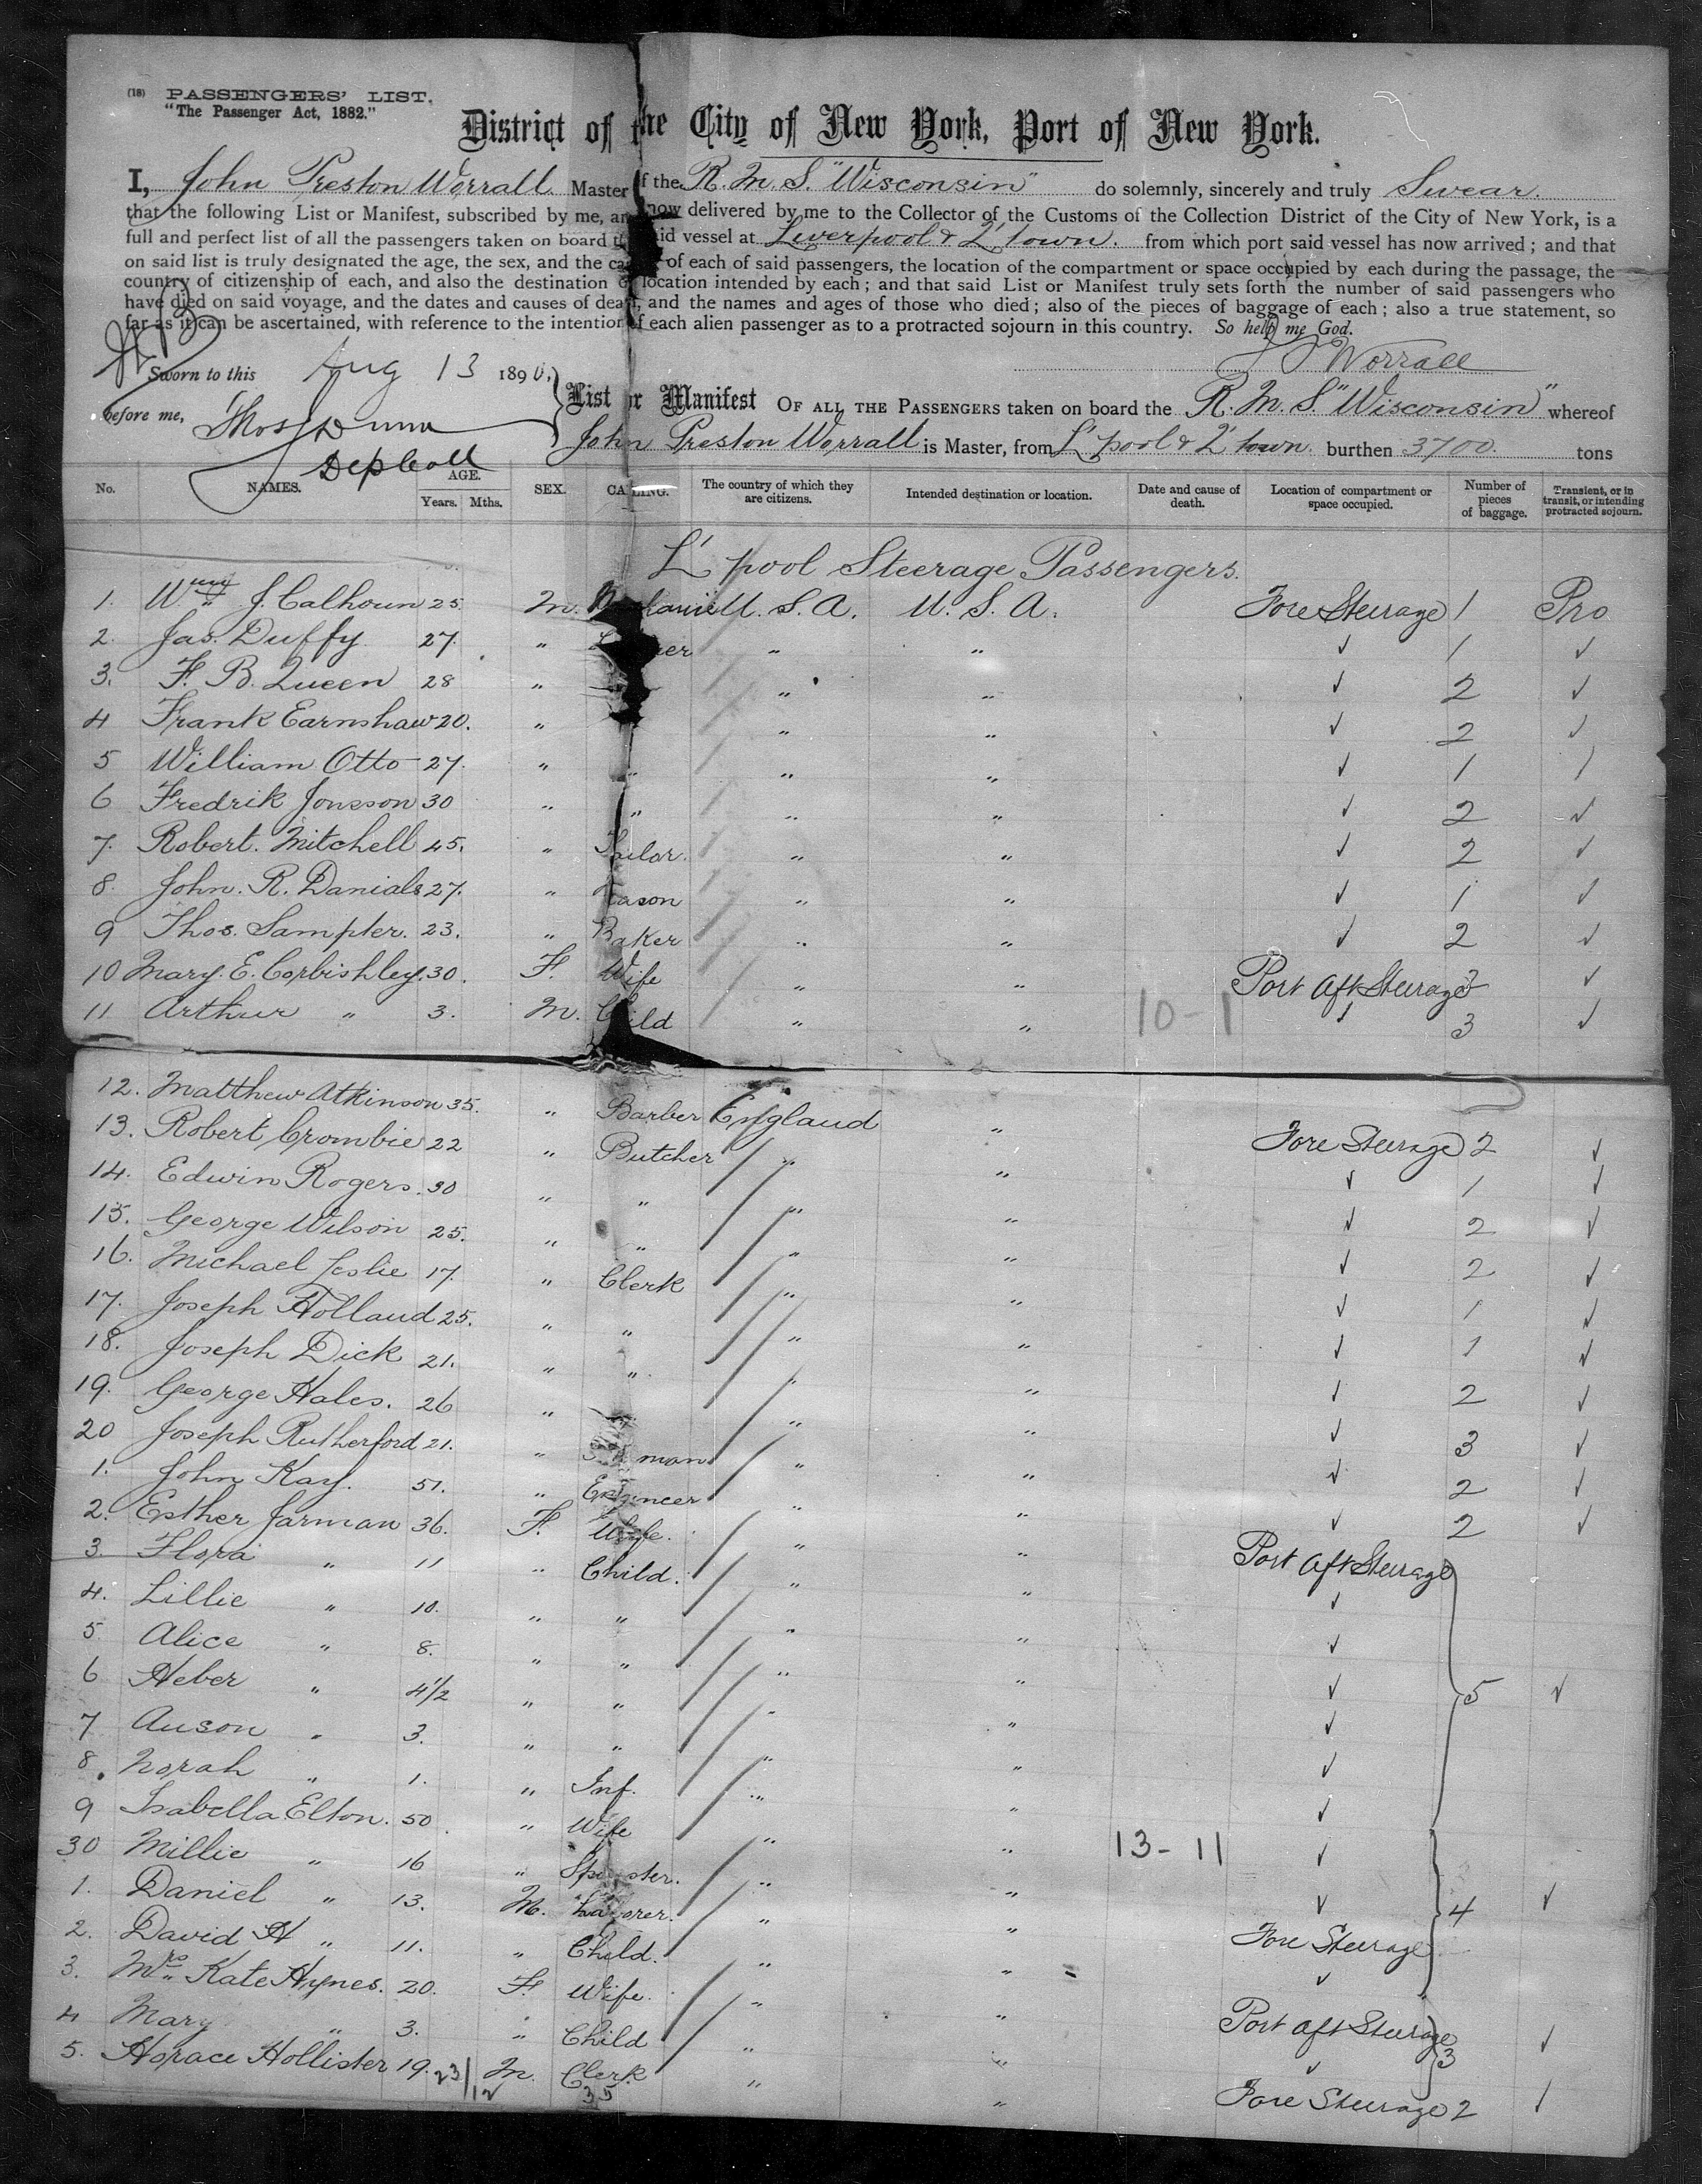 (18) PASSENGERS' LIST.
"The Passenger Act, 1882."
District of the City of New York, Port of New York.
I, John Preston Worrall Master of the R.M.S. "Wisconsin" do solemnly, sincerely and truly Swear.
that the following List or Manifest, subscribed by me, and now delivered by me to the Collector of the Customs of the Collection District of the City of New York, is a
full and perfect list of all the passengers taken on board the said vessel at Liverpool & Q'town. from which port said vessel has now arrived; and that
on said list is truly designated the age, the sex, and the calling of each of said passengers, the location of the compartment or space occupied by each during the passage, the
country of citizenship of each, and also the destination or location intended by each; and that said List or Manifest truly sets forth the number of said passengers who
have died on said voyage, and the dates and causes of death, and the names and ages of those who died; also of the pieces of baggage of each; also a true statement, so
far as it can be ascertained, with reference to the intention of each alien passenger as to a protracted sojourn in this country. So help me God.
J P Worrall
Sworn to this Aug 13 1890,
before me, Thos J Dunn
Dep Coll
List or Manifest OF ALL THE PASSENGERS taken on board the R.M.S. "Wisconsin" whereof
John Preston Worrall is Master, from L'pool & Q'town burthen 3700. tons
No. NAMES. AGE. Years. Mths. SEX. CALLING. The country of which they are citizens. Intended destination or location. Date and cause of death. Location of compartment or space occupied. Number of pieces of baggage. Transient, or in transit, or intending protracted sojourn.
L'pool Steerage Passengers.
1. Wm J. Calhoun 25 M. U.S.A. U.S.A. Fore Steerage 1 Pro
2. Jas. Duffy 27. " " " ✓ 1 ✓
3. F. B. Queen 28 " " " ✓ 2 ✓
4 Frank Earnshaw 20. " " " ✓ 2 ✓
5 William Otto 27. " " " " ✓ 1 /
6 Fredrik Jonsson 30 " " " " ✓ 2 ✓
7. Robert. Mitchell 45. " Tailor. " " ✓ 2 ✓
8. John. R. Danials 27. " Mason " " ✓ 1 ✓
9 Thos. Sampter. 23. " Baker " " ✓ 2 ✓
10 Mary. E. Corbishley. 30. F. Wife " " Port Aft Steerage ✓
11 Arthur " 3. M. Child " " 10-1 ✓ 3 ✓
12. Matthew Atkinson 35. " Barber England " Fore Steerage 2 ✓
13. Robert Crombie 22 " Butcher " " ✓ 1 ✓
14. Edwin Rogers. 30 " " " " ✓ 2 ✓
15. George Wilson 25. " " " " ✓ 2 ✓
16. Michael Leslie 17. " Clerk " " ✓ 1 ✓
17. Joseph Holland 25. " " " " ✓ 1 ✓
18. Joseph Dick 21. " " " " ✓ 2 ✓
19. George Hales. 26 " " " ✓ 3 ✓
20 Joseph Rutherford 21. " " " ✓ 2 ✓
1. John Kay. 51. " Engineer " " ✓ 2 ✓
2. Esther Jarman 36. F. Wife. " " Port Aft Steerage
3. Flora " 11 " Child. " " ✓
4. Lillie " 10. " " " " ✓
5 Alice " 8. " " " " ✓
6 Heber " 4½ " " " " ✓ 5 ✓
7 Anson " 3. " " " " ✓
8. Norah " 1. " Inf. " " ✓
9 Isabella Elton. 50 " Wife " " 13-11 ✓
30 Millie " 16 " Spinster. " " ✓
1. Daniel " 13. M. Laborer. " " Fore Steerage 4 ✓
2. David H " 11. " Child. " " ✓
3. Mrs Kate Hynes. 20. F. Wife. " " Port Aft Steerage
4 Mary " 3. " Child " " ✓ 3 ✓
5. Horace Hollister 19. M. Clerk " " Fore Steerage 2 /
23/12 35